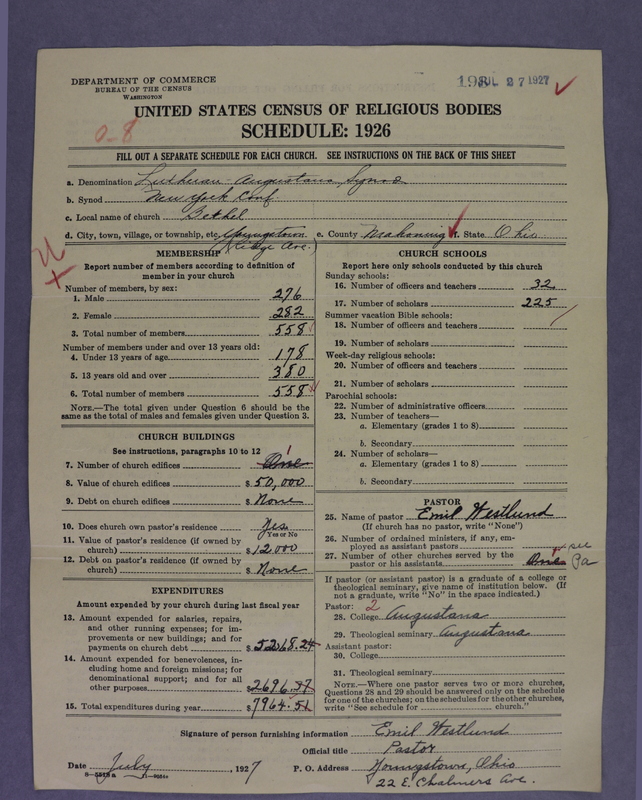 DEPARTMENT OF COMMERCE
BUREAU OF THE CENSUS
WASHINGTON
JUL 27 1927
UNITED STATES CENSUS OF RELIGIOUS BODIES
SCHEDULE: 1926
0-8
FILL OUT A SEPARATE SCHEDULE FOR EACH CHURCH. SEE INSTRUCTIONS ON THE BACK OF THIS SHEET
a. Denomination Lutheran-Augustana Synod
b. Synod New York Conf.
c. Local name of church Bethel
d. City, town, village, or township, etc. Youngstown e. County Mahoning f. State Ohio
(Ridge Ave.)
MEMBERSHIP
Report number of members according to definition of member in your church
Number of members, by sex:
1. Male 276
2. Female 282
3. Total number of members 558
Number of members under and over 13 years old:
4. Under 13 years of age 178
5. 13 years old and over 380
6. Total number of members 558
NOTE.—The total given under Question 6 should be the same as the total of males and females given under Question 3.
CHURCH BUILDINGS
See instructions, paragraphs 10 to 12
7. Number of church edifices One 1
8. Value of church edifices $50,000
9. Debt on church edifices $ None
10. Does church own pastor's residence Yes
Yes or No
11. Value of pastor's residence (if owned by church) $12000
12. Debt on pastor's residence (if owned by church) $ None
EXPENDITURES
Amount expended by your church during last fiscal year
13. Amount expended for salaries, repairs, and other running expenses; for improvements or new buildings; and for payments on church debt $5268.24
14. Amount expended for benevolences, including home and foreign missions; for denominational support; and for all other purposes $2696.
15. Total expenditures during year $7964.51
CHURCH SCHOOLS
Report here only schools conducted by this church
Sunday schools:
16. Number of officers and teachers 32
17. Number of scholars 225
Summer vacation Bible schools:
18. Number of officers and teachers
19. Number of scholars
Week-day religious schools:
20. Number of officers and teachers
21. Number of scholars
Parochial schools:
22. Number of administrative officers
23. Number of teachers—
a. Elementary (grades 1 to 8)
b. Secondary
24. Number of scholars—
a. Elementary (grades 1 to 8)
b. Secondary
PASTOR
25. Name of pastor Emil Westlund
(If church has no pastor, write "None")
26. Number of ordained ministers, if any, employed as assistant pastors
27. Number of other churches served by the pastor or his assistants One see Pa
If pastor (or assistant pastor) is a graduate of a college or theological seminary, give name of institution below. (If not a graduate, write "No" in the space indicated.)
Pastor: 2
28. College Augustana
29. Theological seminary Augustana
Assistant pastor:
30. College
31. Theological seminary
NOTE.—Where one pastor serves two or more churches, Questions 28 and 29 should be answered only on the schedule for one of the churches; on the schedules for the other churches, write "See schedule for church."
Signature of person furnishing information Emil Westlund
Official title Pastor
Date July, 1927 P. O. Address Youngstown, Ohio
22 E. Chalmers Ave.